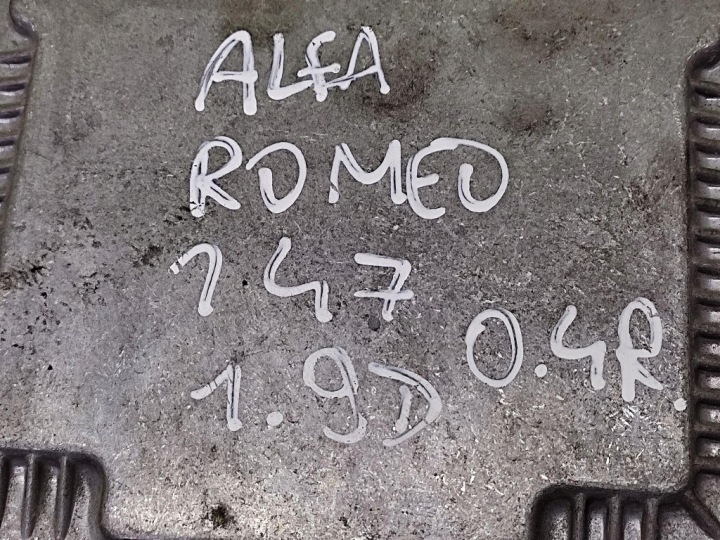 ALFA
ROMEO
147
1.9D 0.4R.